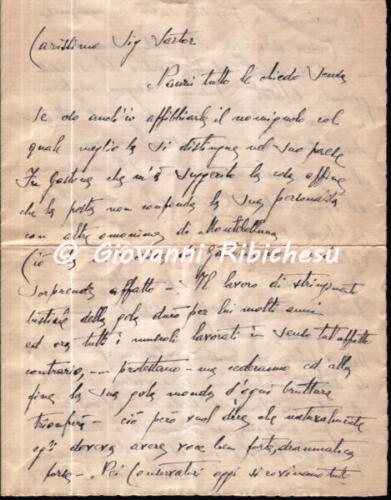 Carissimo Sig Sartor
Nanzi tutto le chiedo scusa
se oso anch'io affibbiarle il nomignolo col
quale meglio la si distingue nel suo paese
Fu Gastone che m'à suggerito la cosa affine
chè la posta non confonda la sua personalità
con altre omonime di Montebelluna
Ciò
© Giovanni Ribichesu
sorprende affatto - Il lavoro di stringimento
della gola durò per lui molti anni
ed ora tutti i muscoli lavorati in senso tutt'affatto
contrario, - protestano - ma cederanno ed alla
fine la sua gola monda d'ogni brutture
trionferà - ciò però vuol dire che naturalmente
egli doveva avere voce ben forte, drammatica
forse - Nei Conservatori oggi si rovinano tutti